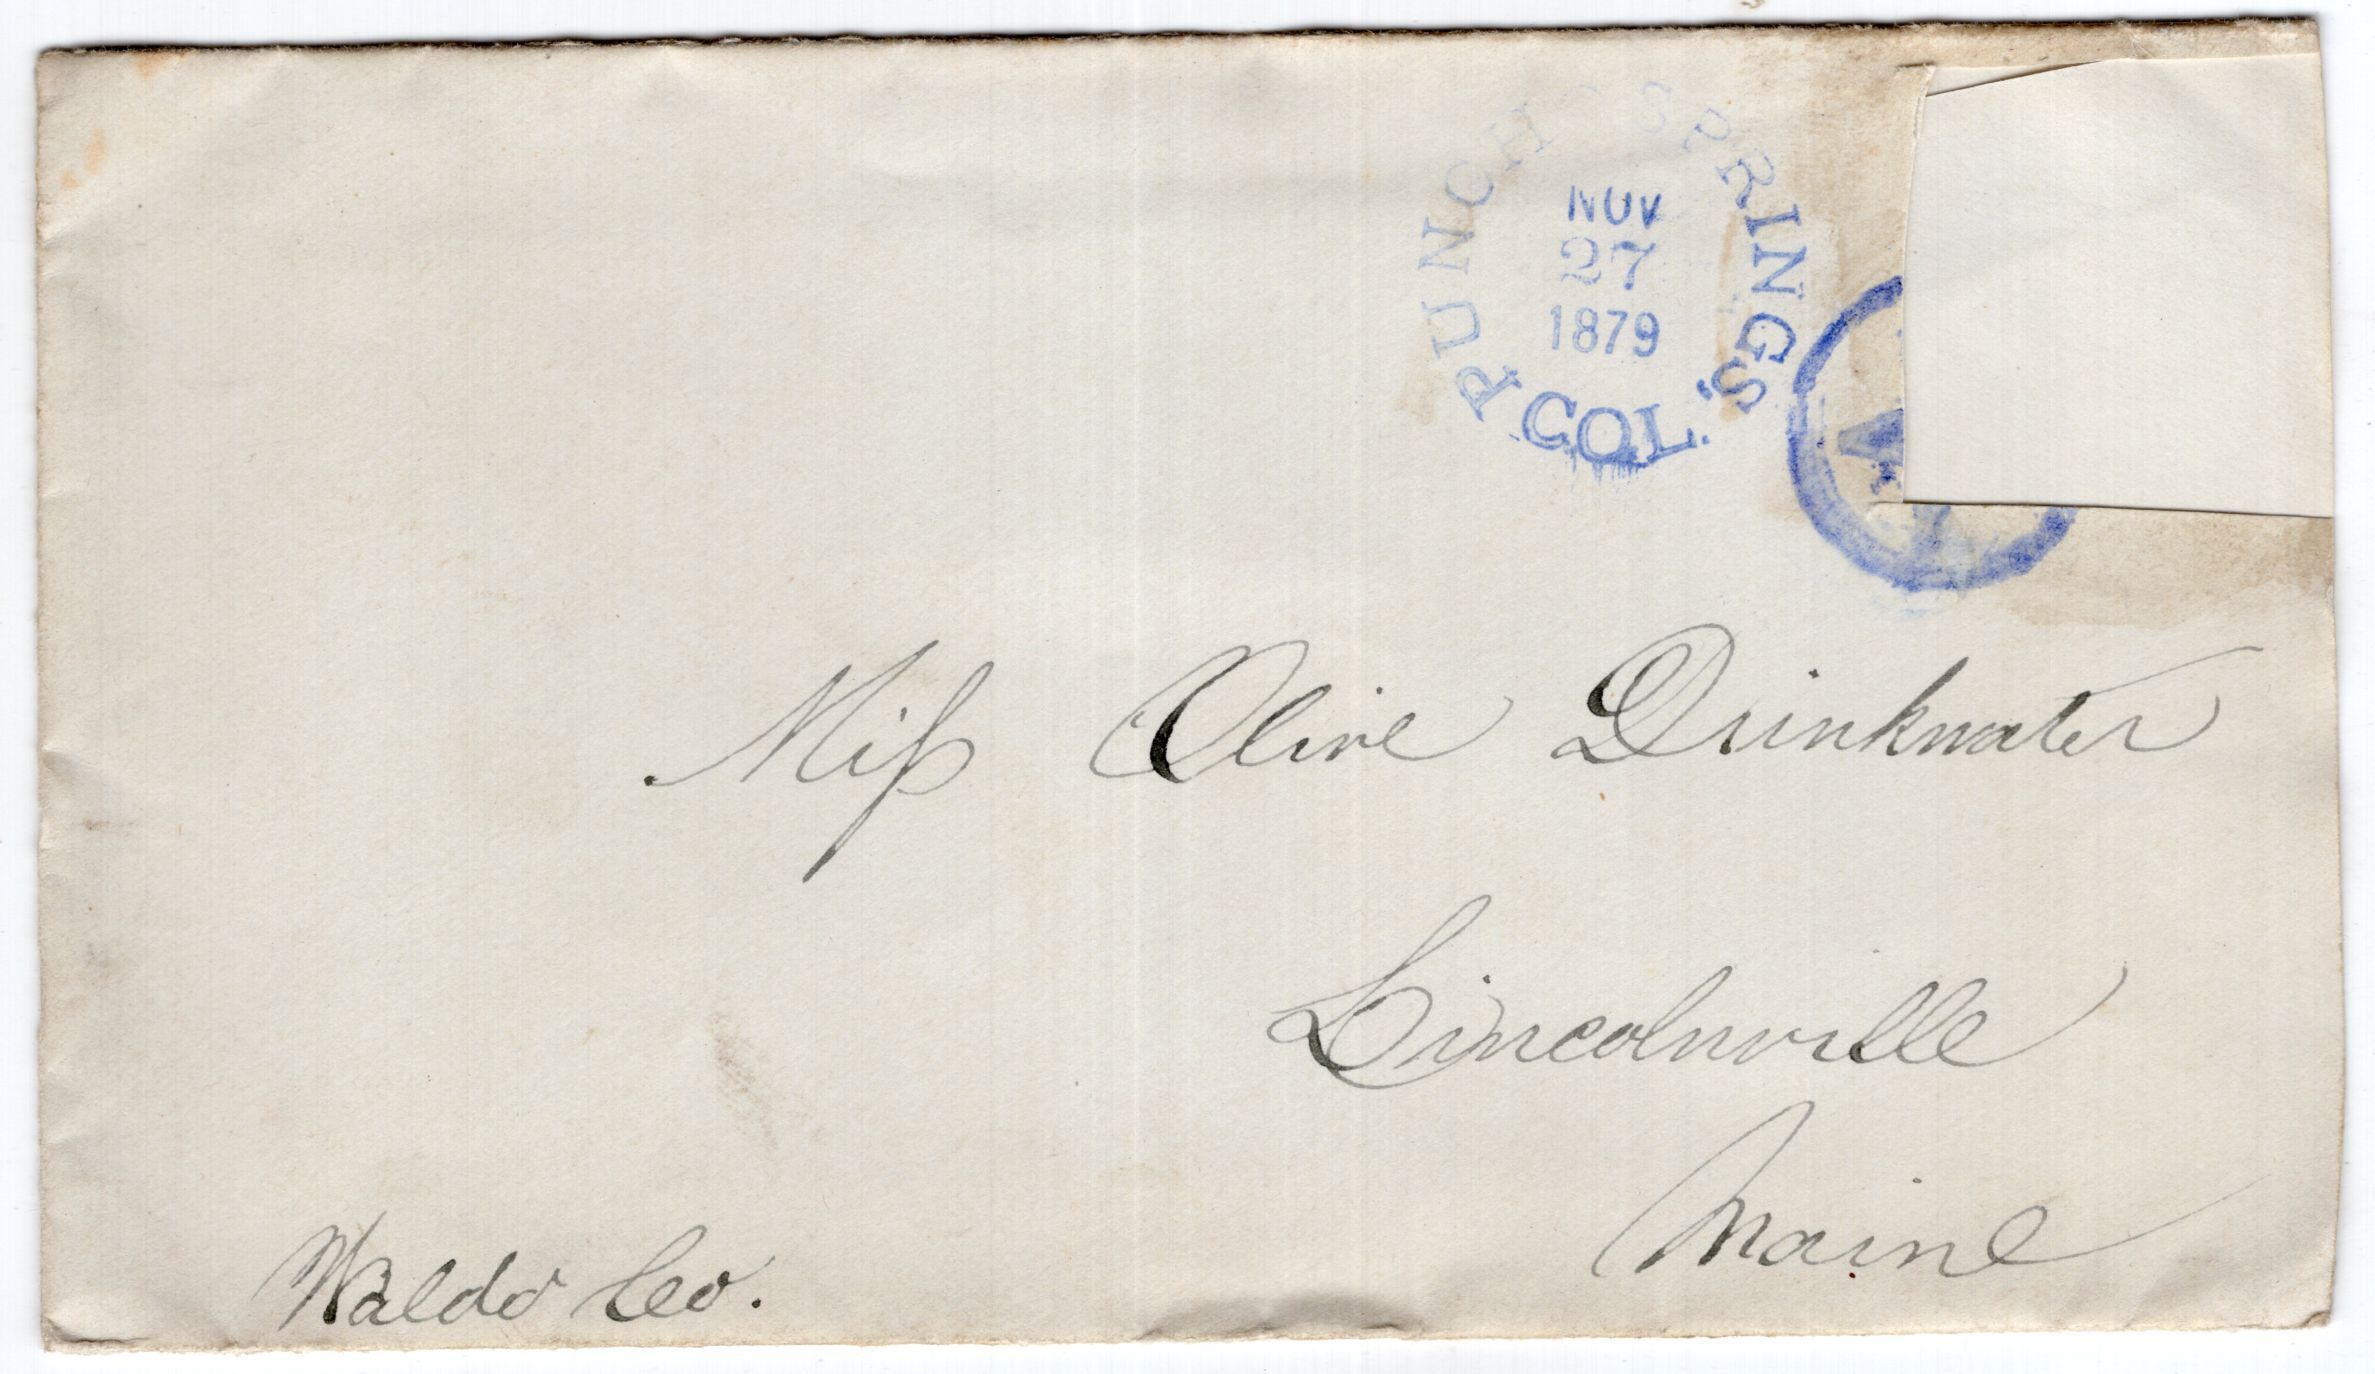 PUNCH SPRINGS, COL.
NOV
27
1879
Miſs Olive Drinkwater
Lincolnville
Maine
Waldo Co.